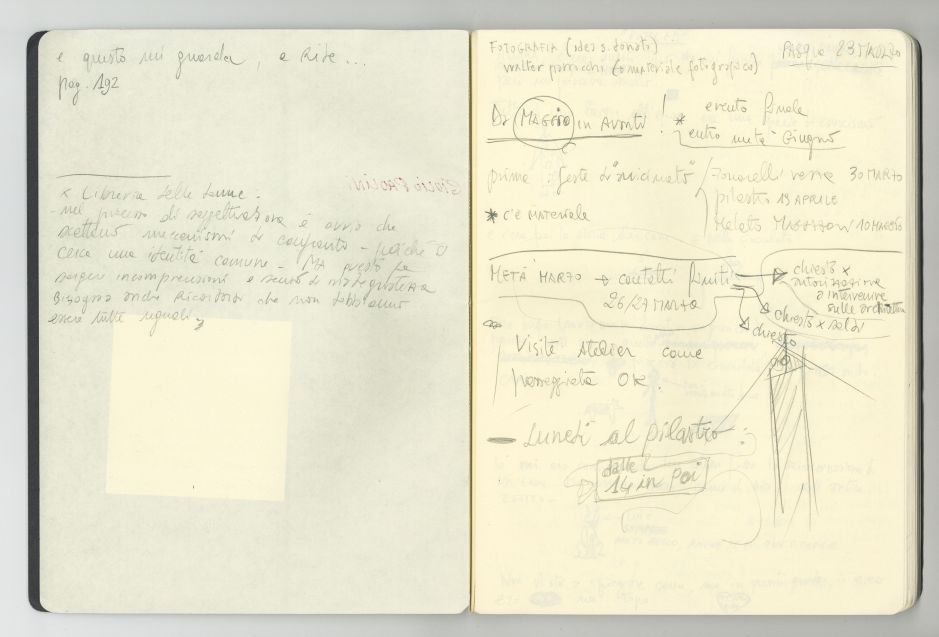 e questo mi guarda, e Ride...
pag. 192
x Libreria delle donne.
- nel processo di soggettivazione è ovvio che
mettiamo meccanismi di confronto - perché si
cerca una identità comune - MA questo fa
sorgere incomprensioni e
Bisogna anche Ricordarsi che non dobbiamo
essere tutte uguali
FOTOGRAFIA (idea s. donato)
walter (o materiale fotografico)
PASQUA 23 MARZO
Da MAGGIO in Avanti ! evento finale
* entro metà Giugno
prima feste di "vicinato" / verne 30 MARZO
pilastro 19 APRILE
10 MAGGIO
* c'è MATERIALE
METÀ MARZO → contatti finiti
26/27 MARZO
chiesto x
autorizzazione
a intervenire
sulle architetture
chiesto x soldi
chiesto
Visite Atelier come
passeggiata OK.
- Lunedì al pilastro :
dalle
14 in poi